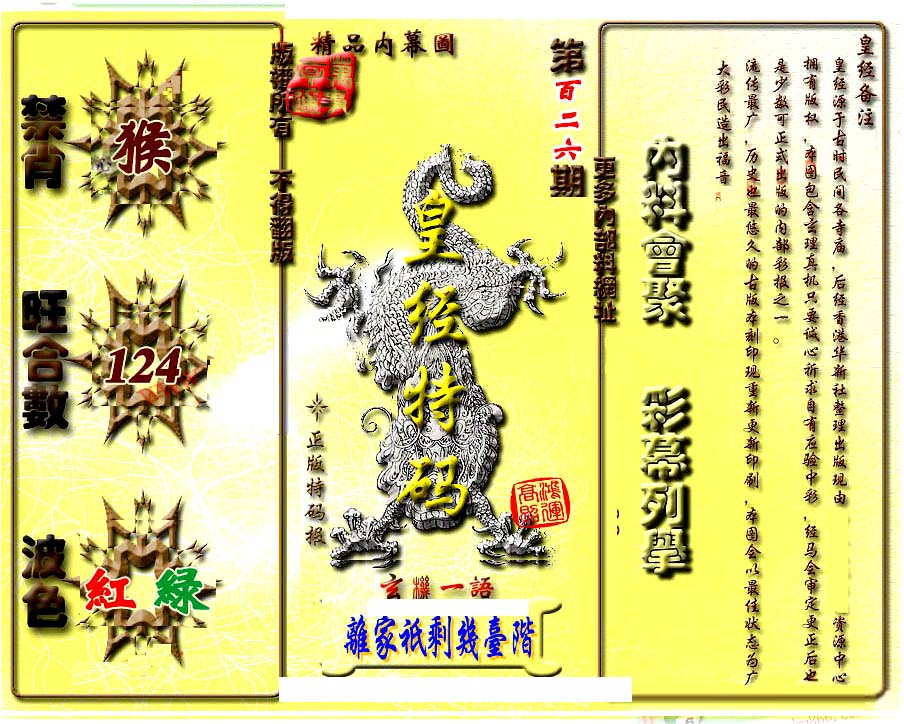 禁肖
猴
旺合數
124
波色
紅 綠
版權所有 不得翻版
精品内幕圖
第百二六期
皇经特码
正版特码报
鴻運
高照
玄機一語
離家祇剩幾臺階
更多内部料網址
内料會聚 彩幕列擧
皇经备注
皇经源于古时民间各寺庙，后经香港华新社整理出版现由 资源中心
拥有版权，本图包含玄理真机只要诚心祈求自有应验中彩，经马会审定更正后也
是少数可正式出版的内部彩报之一。
流传最广，历史也最悠久的古版本刻印现重新更新印刷，本图会以最佳状态为广
大彩民造出福音